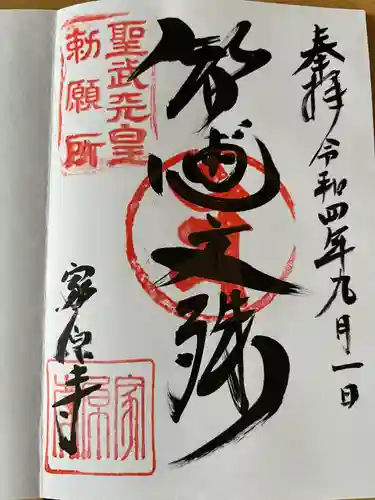 奉拝 令和四年九月一日
智恵文殊
聖武天皇
勅願所
家原寺
家原寺